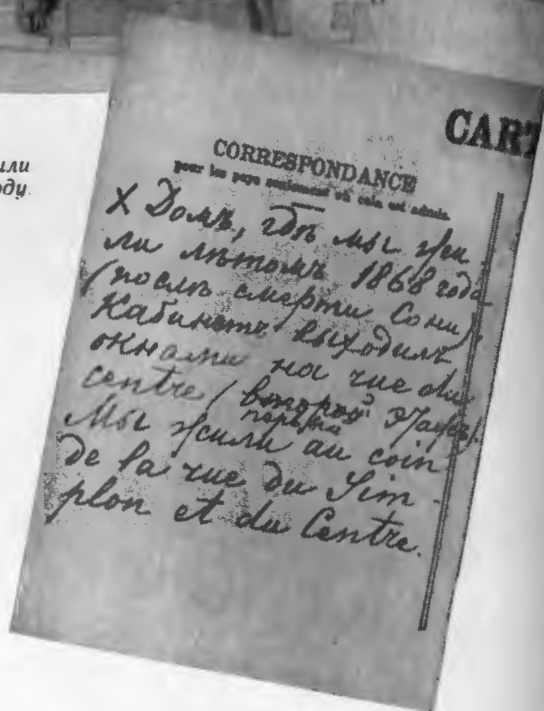 или
оду.
CART
CORRESPONDANCE
pour les pays seulement où cela est admis.
X Домъ, гдѣ мы жи-
ли лѣтомъ 1868 года
(послѣ смерти Сони).
Кабинетъ выходилъ
окнами на rue du
centre (второй этажъ).
первый
Мы жили au coin
de la rue du Sim-
plon et du Centre.